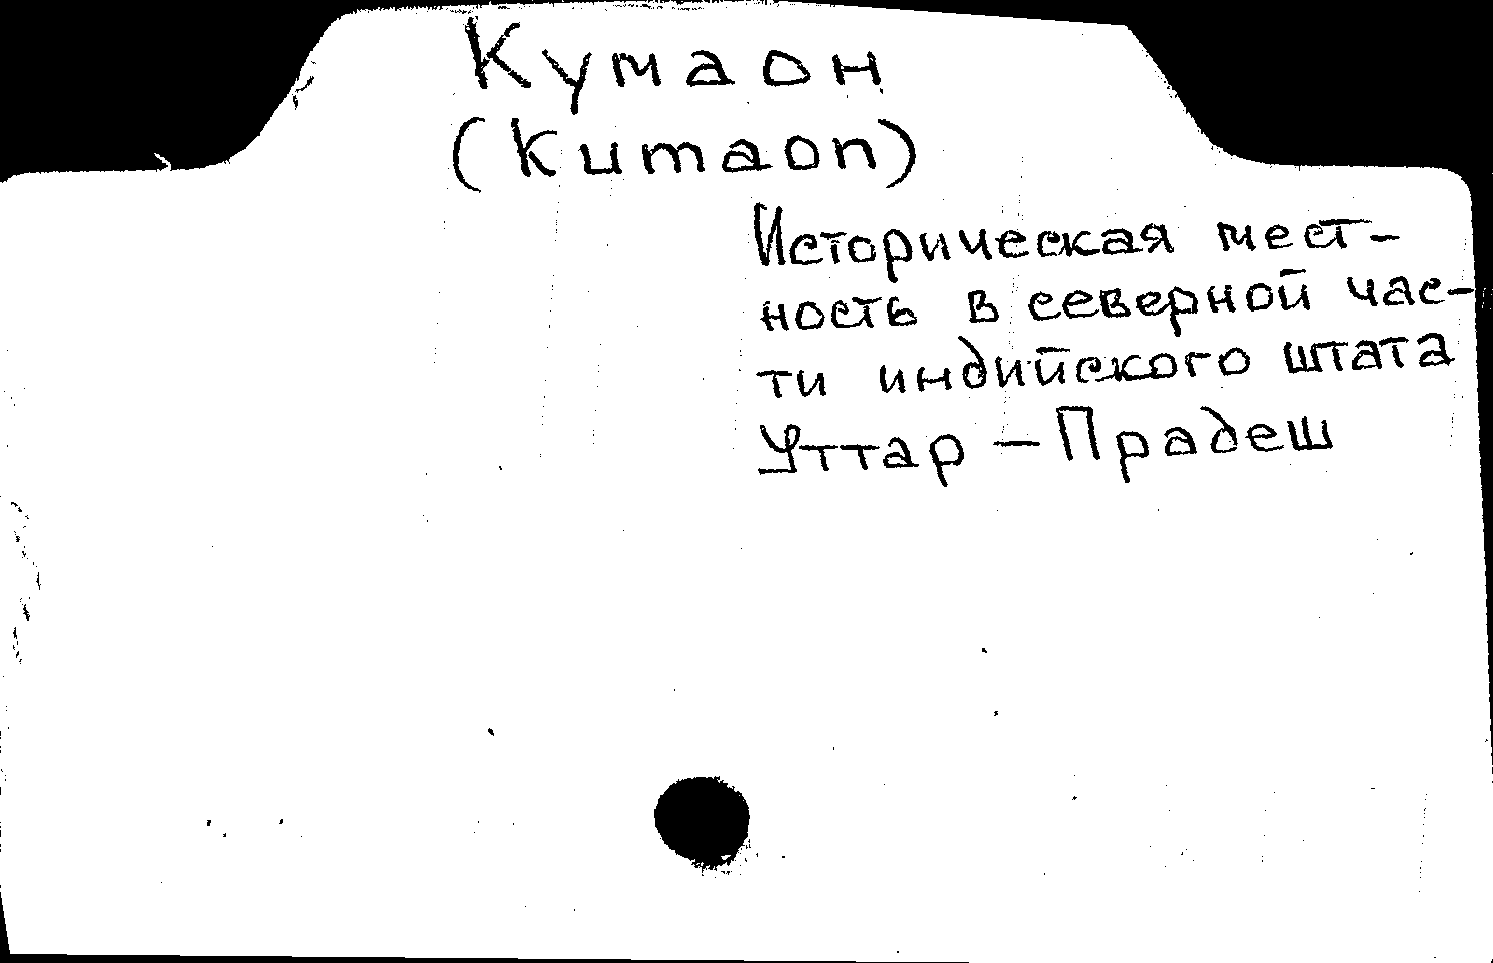 Кумаон
(Kumaon)
Историческая мест-
ность в северной час-
ти индийского штата
Уттар – Прадеш